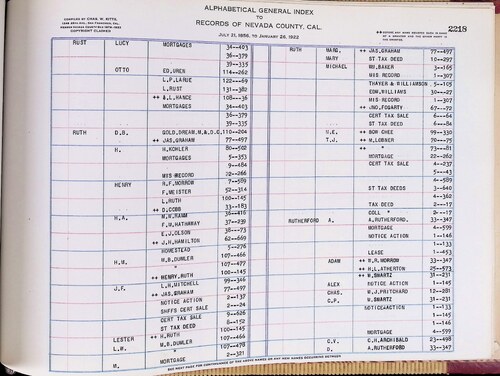 ALPHABETICAL GENERAL INDEX
TO
RECORDS OF NEVADA COUNTY, CAL.
JULY 21, 1856, TO JANUARY 26, 1922
COMPILED BY CHAS. W. KITTS,
COPYRIGHT CLAIMED
2218
RUST LUCY MORTGAGES 34—403
36—379
39—335
OTTO ED. UREN 114—262
L.P. LARUE 122—69
L. RUST 131—382
++ A.L. HANCE 108—36
MORTGAGES 34—403
36—379
39—335
RUTH D.B. GOLD.DREAM.M.& D.C. 110—204
++ JAS. GRAHAM 77—497
H. H. KOHLER 80—502
MORTGAGES 5—353
9—484
MIS RECORD 22—266
HENRY R.F. MORROW 7—589
F. MEISTER 52—314
L. RUTH 100—145
++ D. COBB 33—183
H.A. M.N. RANN 36—416
F.M. HATHAWAY 37—239
E.J. OLSON 38—73
++ J.H. HAMILTON 62—669
HOMESTEAD 5—276
H.M. M.B. DUNLEY 107—466
" 107—477
++ HENRY.RUTH 100—145
J.F. L.H. MITCHELL 99—346
++ JAS. GRAHAM 77—497
NOTICE ACTION 2—137
SHFFS CERT SALE 2—24
CERT TAX SALE 9—626
ST TAX DEED 8—152
LESTER ++ H. RUTH 100—145
L.W. M.B. DUNLEY 107—466
" 107—478
W. MORTGAGE 2—321
RUTH MARG. ++ JAS. GRAHAM 77—497
MARY ST TAX DEED 10—297
MICHAEL WM. BAKER 3—165
MIS RECORD 1—307
THAYER & WILLIAMSON 5—105
EDW. WILLIAMS 30—27
MIS RECORD 1—307
++ JNO. FOGARTY 67—72
CERT TAX SALE 6—64
ST TAX DEED 6—84
W.E. ++ BOW CHEE 99—330
T.J. ++ M. LEHNER 70—75
++ " 73—81
MORTGAGE 22—262
CERT TAX SALE 4—237
5—43
4—589
ST TAX DEEDS 3—640
4—362
TAX DEED 2—17
COLL " D—17
RUTHERFORD A. A. RUTHERFORD. 33—347
MORTGAGE 4—599
NOTICE ACTION 1—146
1—133
LEASE 1—453
ADAM ++ R.R. MORROW 33—347
++ H.L. ATHERTON 25—573
++ W. SWARTZ 31—231
ALEX NOTICE ACTION 1—146
CHAS. W.J. PRITCHARD 12—281
C.P. W. SWARTZ 31—231
NOTICE ACTION 1—133
1—145
1—146
MORTGAGE 4—599
C.V. C.H. ARCHIBALD 23—498
D. A. RUTHERFORD 33—347
SEE NEXT PAGE FOR CONTINUATION OF THE ABOVE NAMES OR ANY NEW NAMES OCCURRING BETWEEN